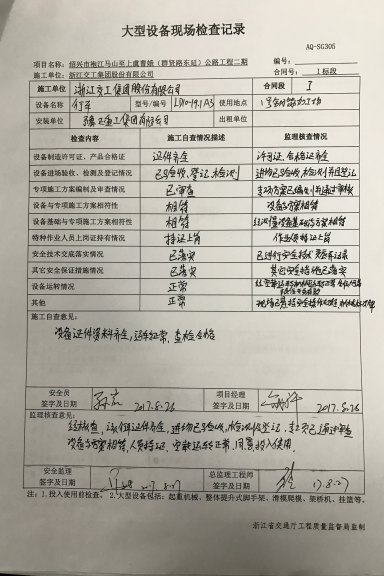 大型设备现场检查记录
AQ-SG306
项目名称：绍兴市袍江马山至上虞曹娥（群贤路东延）公路工程二期 编号：
施工单位：浙江交工集团股份有限公司 合同号： 1 标段
施工单位 浙江交工集团股份有限公司 合同段 I
设备名称 行车 型号/编号 使用地点
安装单位 出租单位
检查内容 施工自查情况描述 监理核查情况
设备制造许可证、产品合格证 证件齐全 许可证、合格证齐全
设备进场验收、检测及登记情况 已验收、登记、检测 进场已验收、检测并且登记
专项施工方案编制及审查情况 已审查 专项方案已编制并通过审核
设备与专项施工方案相符性 相符 设备与方案相符
设备基础与专项施工方案相符性 相符 设备基础与方案相符
特种作业人员上岗证持有情况 持证上岗 作业员持证上岗
安全技术交底落实情况 已落实 已进行安全技术交底有记录
其它安全保证措施情况 已落实 其它安全措施已落实
设备运转情况 正常
其他 正常
施工自查意见：
设备证件资料齐全，运转正常，查检合格
安全员 项目经理
签字及日期 2017.8.26 签字及日期 2017.8.26
监理核查意见：
经核查，该行车证件齐全，进场已验收，检测及登记，专项方案已通过审查
设备与方案相符，人员持证，空载运转正常，同意投入使用。
安全监理 总监理工程师
签字及日期 2017.8.27 签字及日期 17.8.27
注：1.投入使用前检查。2.大型设备包括：起重机械、整体提升式脚手架、滑模爬模、架桥机、挂篮等。
浙江省交通厅工程质量监督局监制